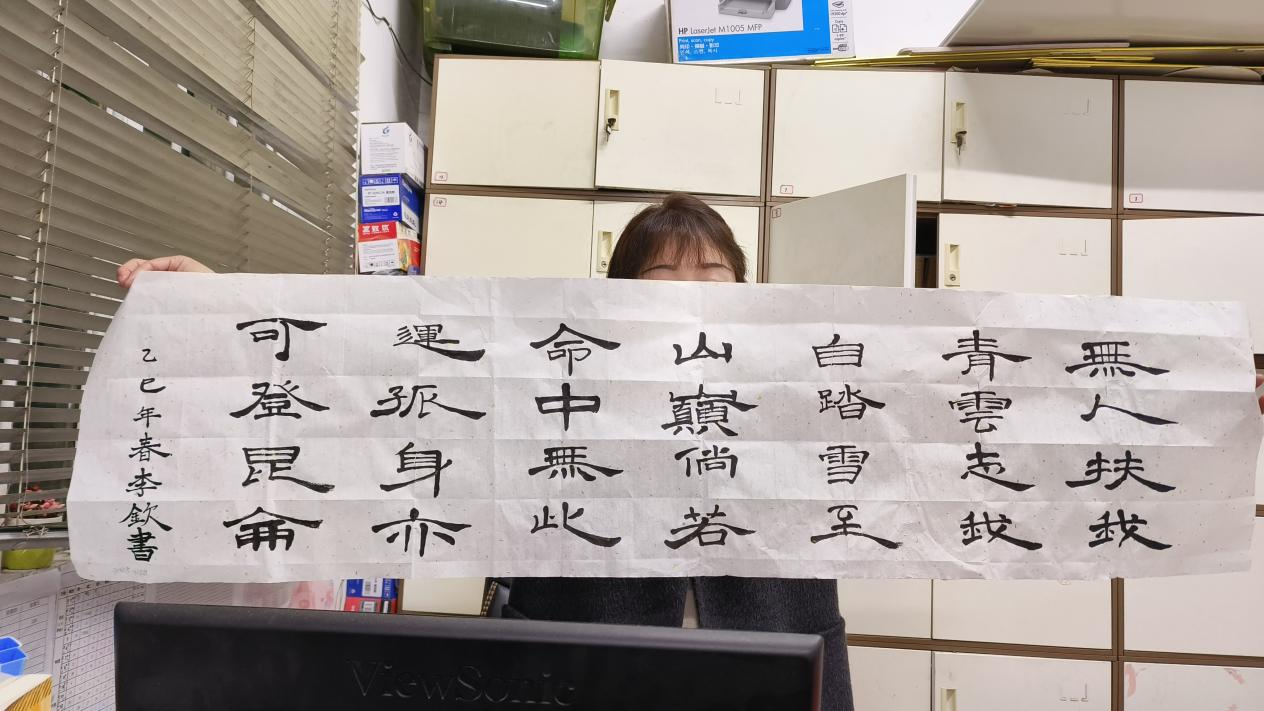 HP LaserJet M1005 MFP
Print, scan, copy
無人扶我
青雲志我
自踏雪至
山巔倘若
命中無此
運孤身亦
可登昆侖
乙巳年春李欽書
ViewSonic